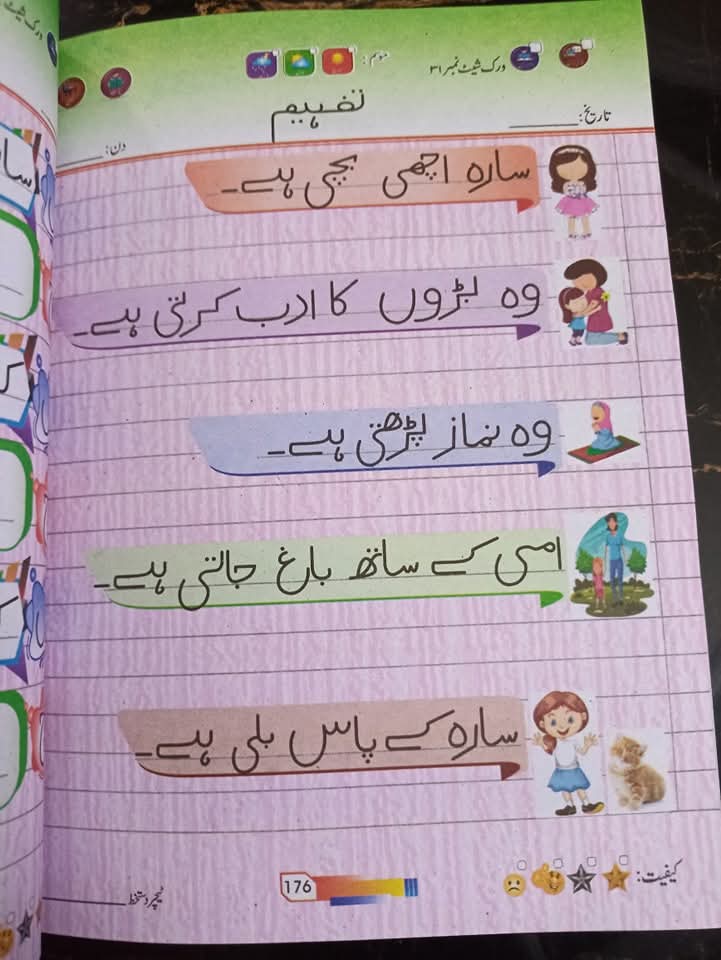 موسم: ورک شیٹ نمبر ۳۱
تفہیم
تاریخ: دن:
سارہ اچھی بچی ہے۔
وہ بڑوں کا ادب کرتی ہے۔
وہ نماز پڑھتی ہے۔
امی کے ساتھ باغ جاتی ہے۔
سارہ کے پاس بلی ہے۔
کیفیت:
176
ٹیچر دستخط